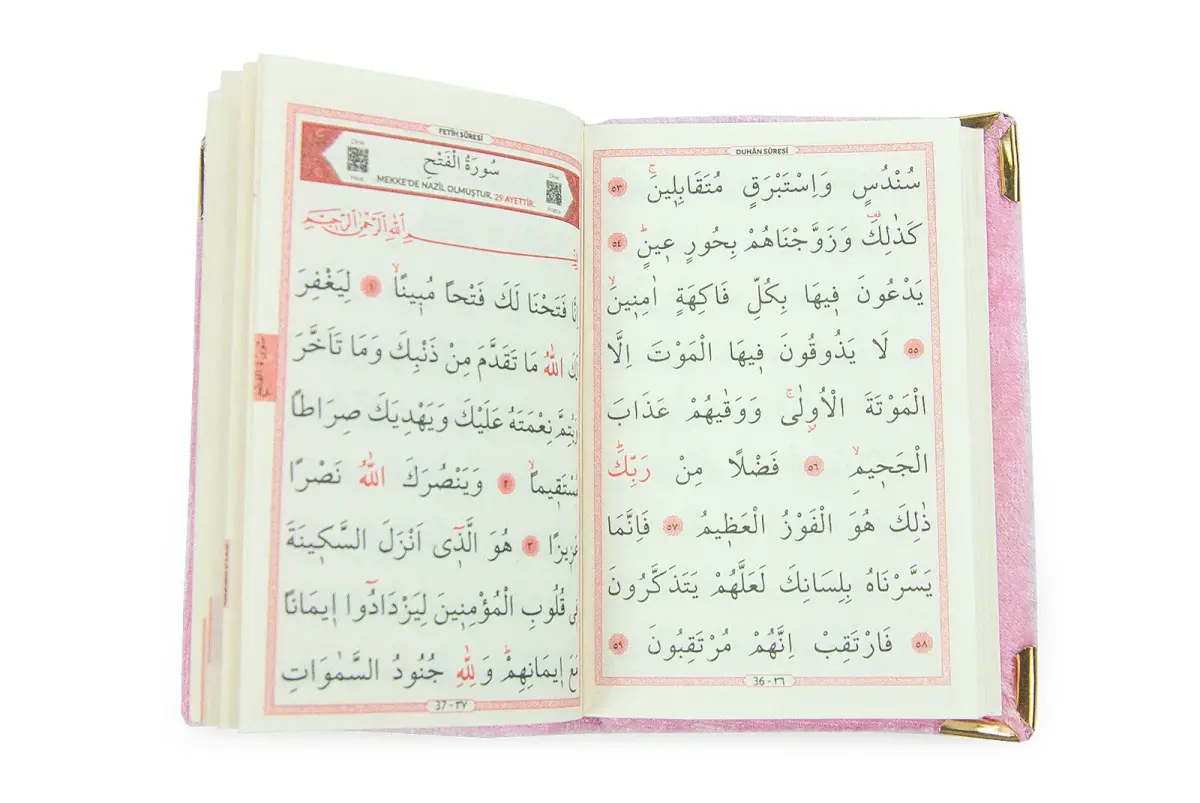 DUHÂN SÛRESİ
سُنْدُسٍ وَاِسْتَبْرَقٍ مُتَقَابِلٖينَۚ ٥٣
كَذٰلِكَࣞ وَزَوَّجْنَاهُمْ بِحُورٍ عٖينٍؕ ٥٤
يَدْعُونَ فٖيهَا بِكُلِّ فَاكِهَةٍ اٰمِنٖينَۙ
٥٥ لَا يَذُوقُونَ فٖيهَا الْمَوْتَ اِلَّا
الْمَوْتَةَ الْاُولٰىۚ وَوَقٰيهُمْ عَذَابَ
الْجَحٖيمِۙ ٥٦ فَضْلًا مِنْ رَبِّكَؕ
ذٰلِكَ هُوَ الْفَوْزُ الْعَظٖيمُ ٥٧ فَاِنَّمَا
يَسَّرْنَاهُ بِلِسَانِكَ لَعَلَّهُمْ يَتَذَكَّرُونَ
٥٨ فَارْتَقِبْ اِنَّهُمْ مُرْتَقِبُونَ ٥٩
36 - ٣٦
FETİH SÛRESİ
سُورَةُ الْفَتْحِ
MEKKE'DE NAZİL OLMUŞTUR. 29 AYETTİR.
اللّٰهِ الرَّحْمٰنِ الرَّحٖيمِ
فَتَحْنَا لَكَ فَتْحًا مُبٖينًاۙ ١ لِيَغْفِرَ
اللّٰهُ مَا تَقَدَّمَ مِنْ ذَنْبِكَ وَمَا تَاَخَّرَ
نِعْمَتَهُ عَلَيْكَ وَيَهْدِيَكَ صِرَاطًا
٢ وَيَنْصُرَكَ اللّٰهُ نَصْرًا
٣ هُوَ الَّذٖٓى اَنْزَلَ السَّكٖينَةَ
قُلُوبِ الْمُؤْمِنٖينَ لِيَزْدَادُٓوا اٖيمَانًا
اٖيمَانِهِمْؕ وَلِلّٰهِ جُنُودُ السَّمٰوَاتِ
37 - ٣٧